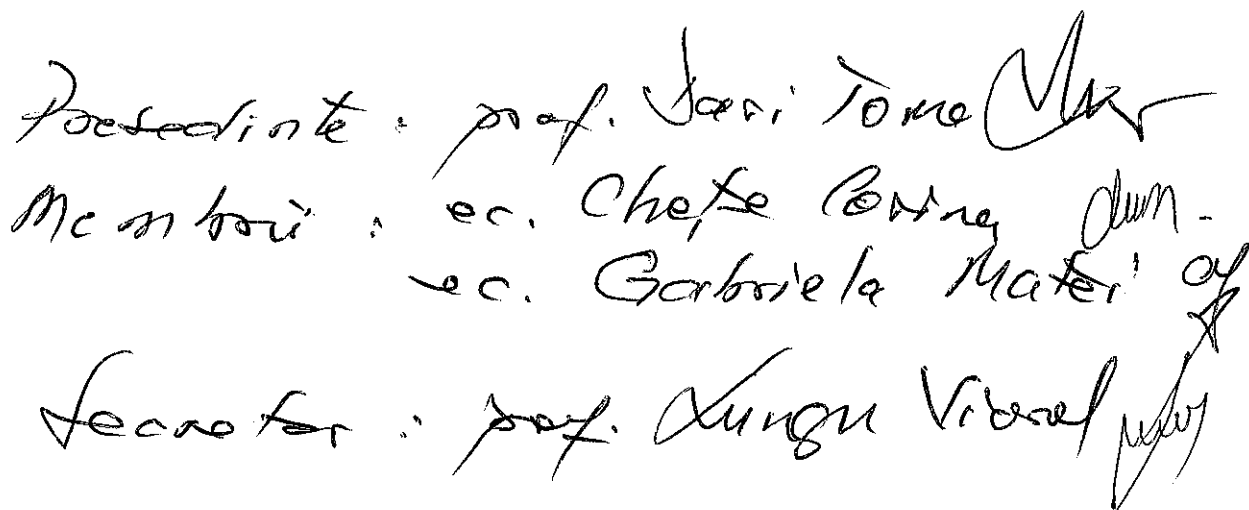 Presedinte : prof. Savi Toma
Membrii : ec. Chefte Corina
ec. Gabriela Matei
Secretar : prof. Lungu Viorel